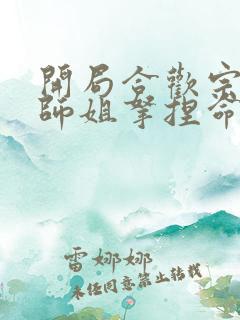 開局合歡宗
師姐拿捏命
雷娜娜
未經同意禁止轉載